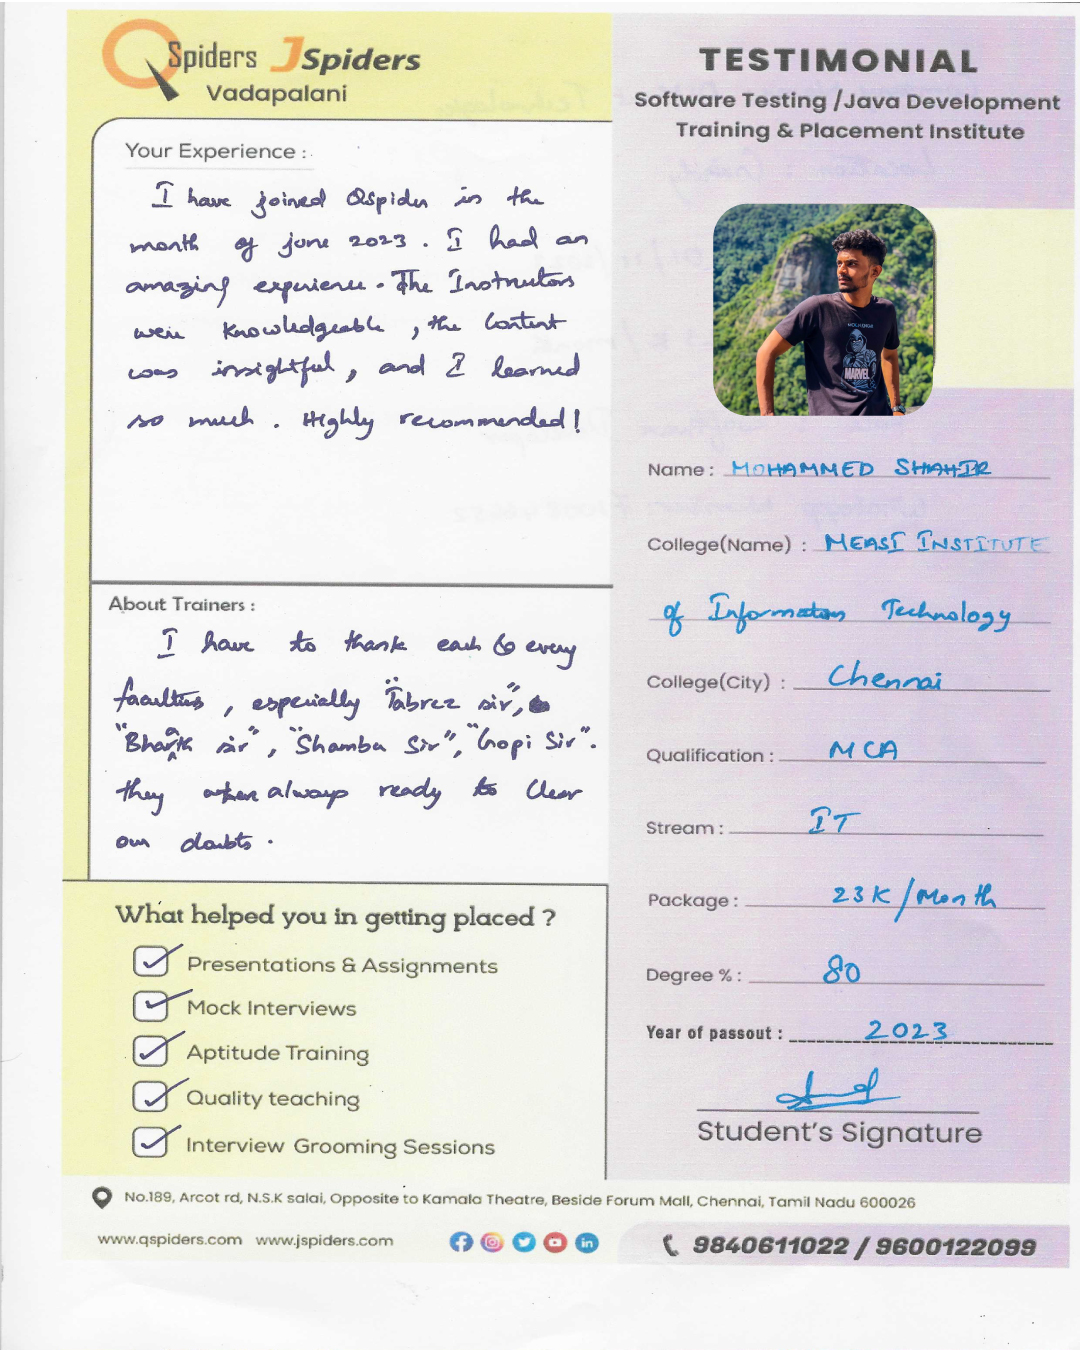 QSpiders JSpiders
Vadapalani
Your Experience :
I have joined QSpider in the
month of june 2023 . I had an
amazing experience . The Instructors
were Knowledgeable , the Content
was insightful , and I learned
so much . Highly recommended !
About Trainers :
I have to thank each & every
faculties , especially "Tabrez sir",
"Bharath sir", "Shambu Sir", "Gopi Sir".
they always ready to Clear
our doubts .
What helped you in getting placed ?
Presentations & Assignments
Mock Interviews
Aptitude Training
Quality teaching
Interview Grooming Sessions
TESTIMONIAL
Software Testing /Java Development
Training & Placement Institute
MARVEL
Name : MOHAMMED SHAHIR
College(Name) : MEASI INSTITUTE
of Information Technology
College(City) : Chennai
Qualification : MCA
Stream : IT
Package : 23K/Month
Degree % : 80
Year of passout : 2023
Student's Signature
No.189, Arcot rd, N.S.K salai, Opposite to Kamala Theatre, Beside Forum Mall, Chennai, Tamil Nadu 600026
www.qspiders.com www.jspiders.com
9840611022 / 9600122099